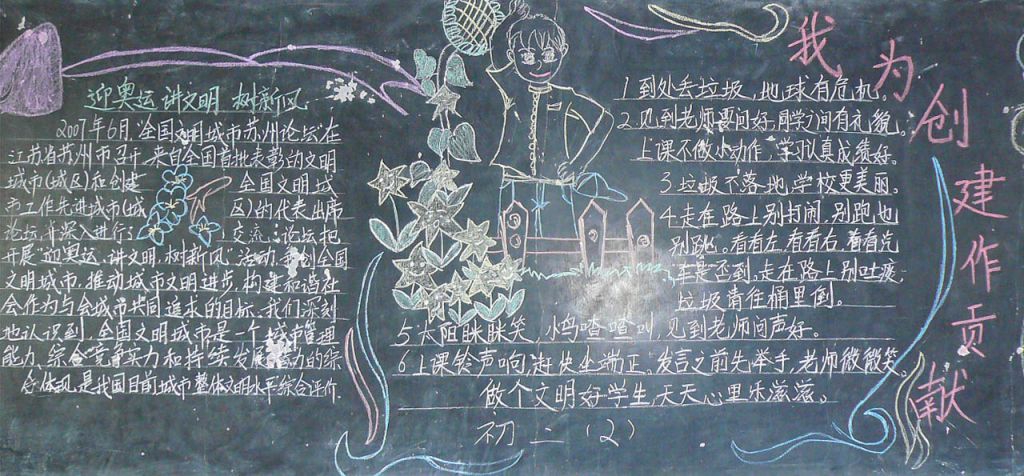 迎奥运 讲文明 树新风
2007年6月,全国文明城市苏州论坛在
江苏省苏州市召开,来自全国首批表彰的文明
城市(城区)和创建 全国文明城
市工作先进城市(城 区)的代表出席
论坛并深入进行了 交流。论坛把
开展"迎奥运、讲文明、树新风"活动,争创全国
文明城市,推动城市文明进步,构建和谐社
会作为与会城市共同追求的目标。我们深刻
地认识到,全国文明城市是一个城市管理
能力、综合竞争实力和持续发展能力的综
合体现,是我国目前城市整体文明水平综合评价.
我为创建作贡献
1 到处丢垃圾,地球有危机。
2 见到老师要问好,同学之间有礼貌。
上课不做小动作,学习认真成绩好。
3 垃圾不落地,学校更美丽。
4 走在路上别打闹,别跑也
别跳。看看左,看看右,看看先
车辆否到,走在路上别吐痰,
垃圾青往桶里倒。
5 太阳眯眯笑 小鸟喳喳叫,见到老师问声好。
6 上课铃声响,赶快坐端正。发言之前先举手,老师微微笑。
做个文明好学生,天天心里乐滋滋。
初二(2)